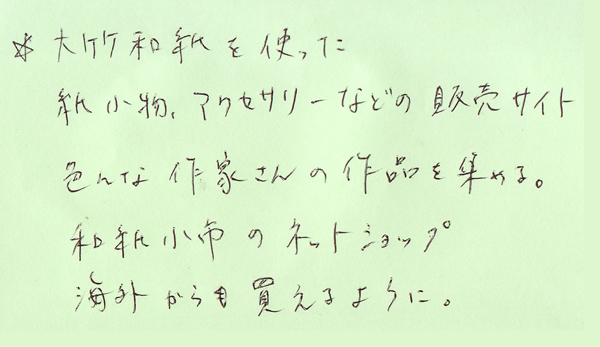 ☆ 大竹和紙を使った
紙小物、アクセサリーなどの販売サイト
色んな作家さんの作品を集める。
和紙小市のネットショップ
海外からも買えるように。